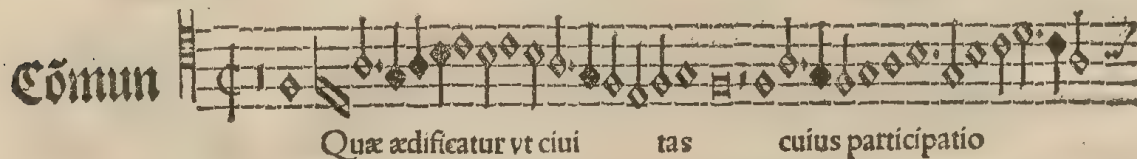 Cõmun
Quæ ædificatur vt ciui tas cuius participatio